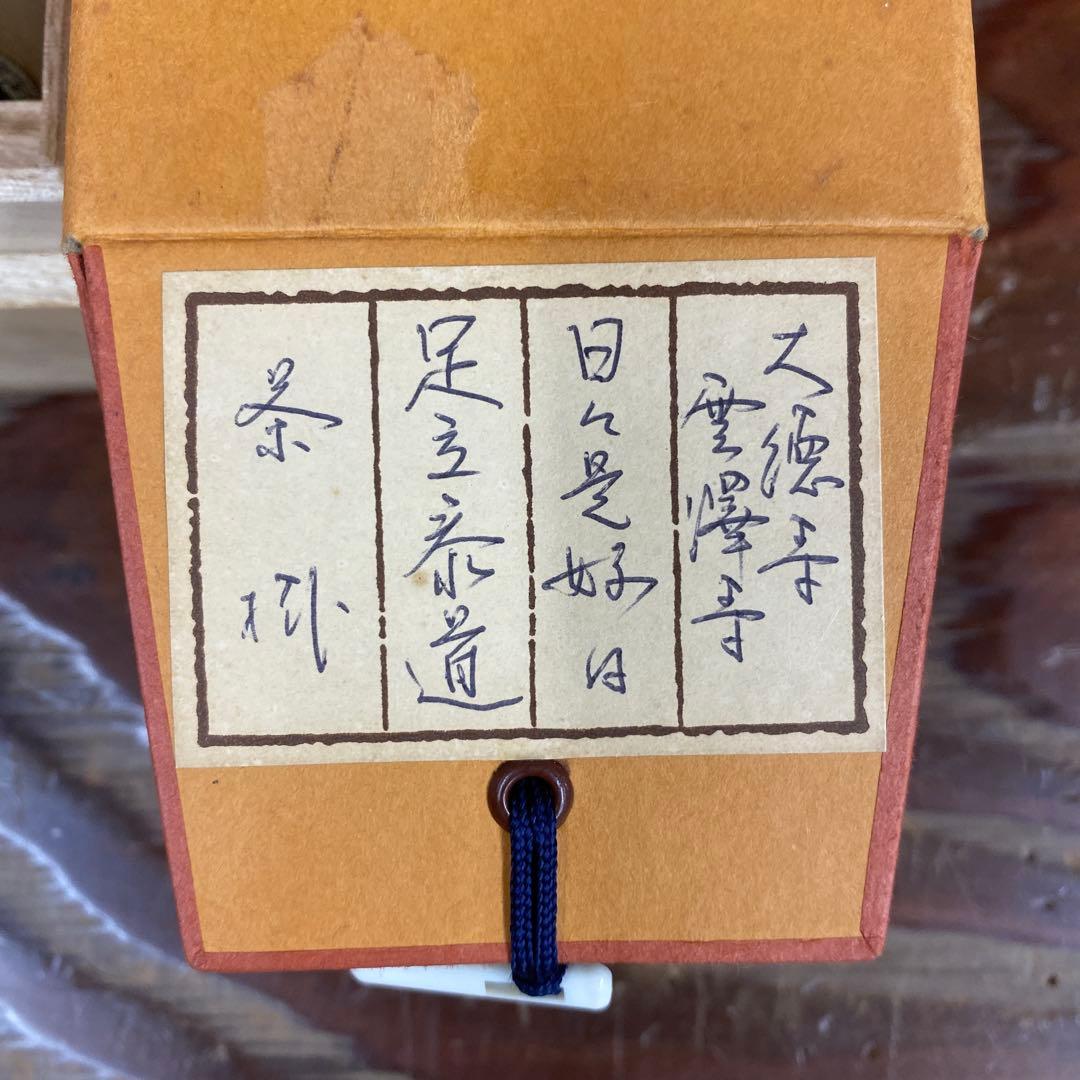 大徳寺
雲澤寺
日々是好日
足立泰道
茶掛